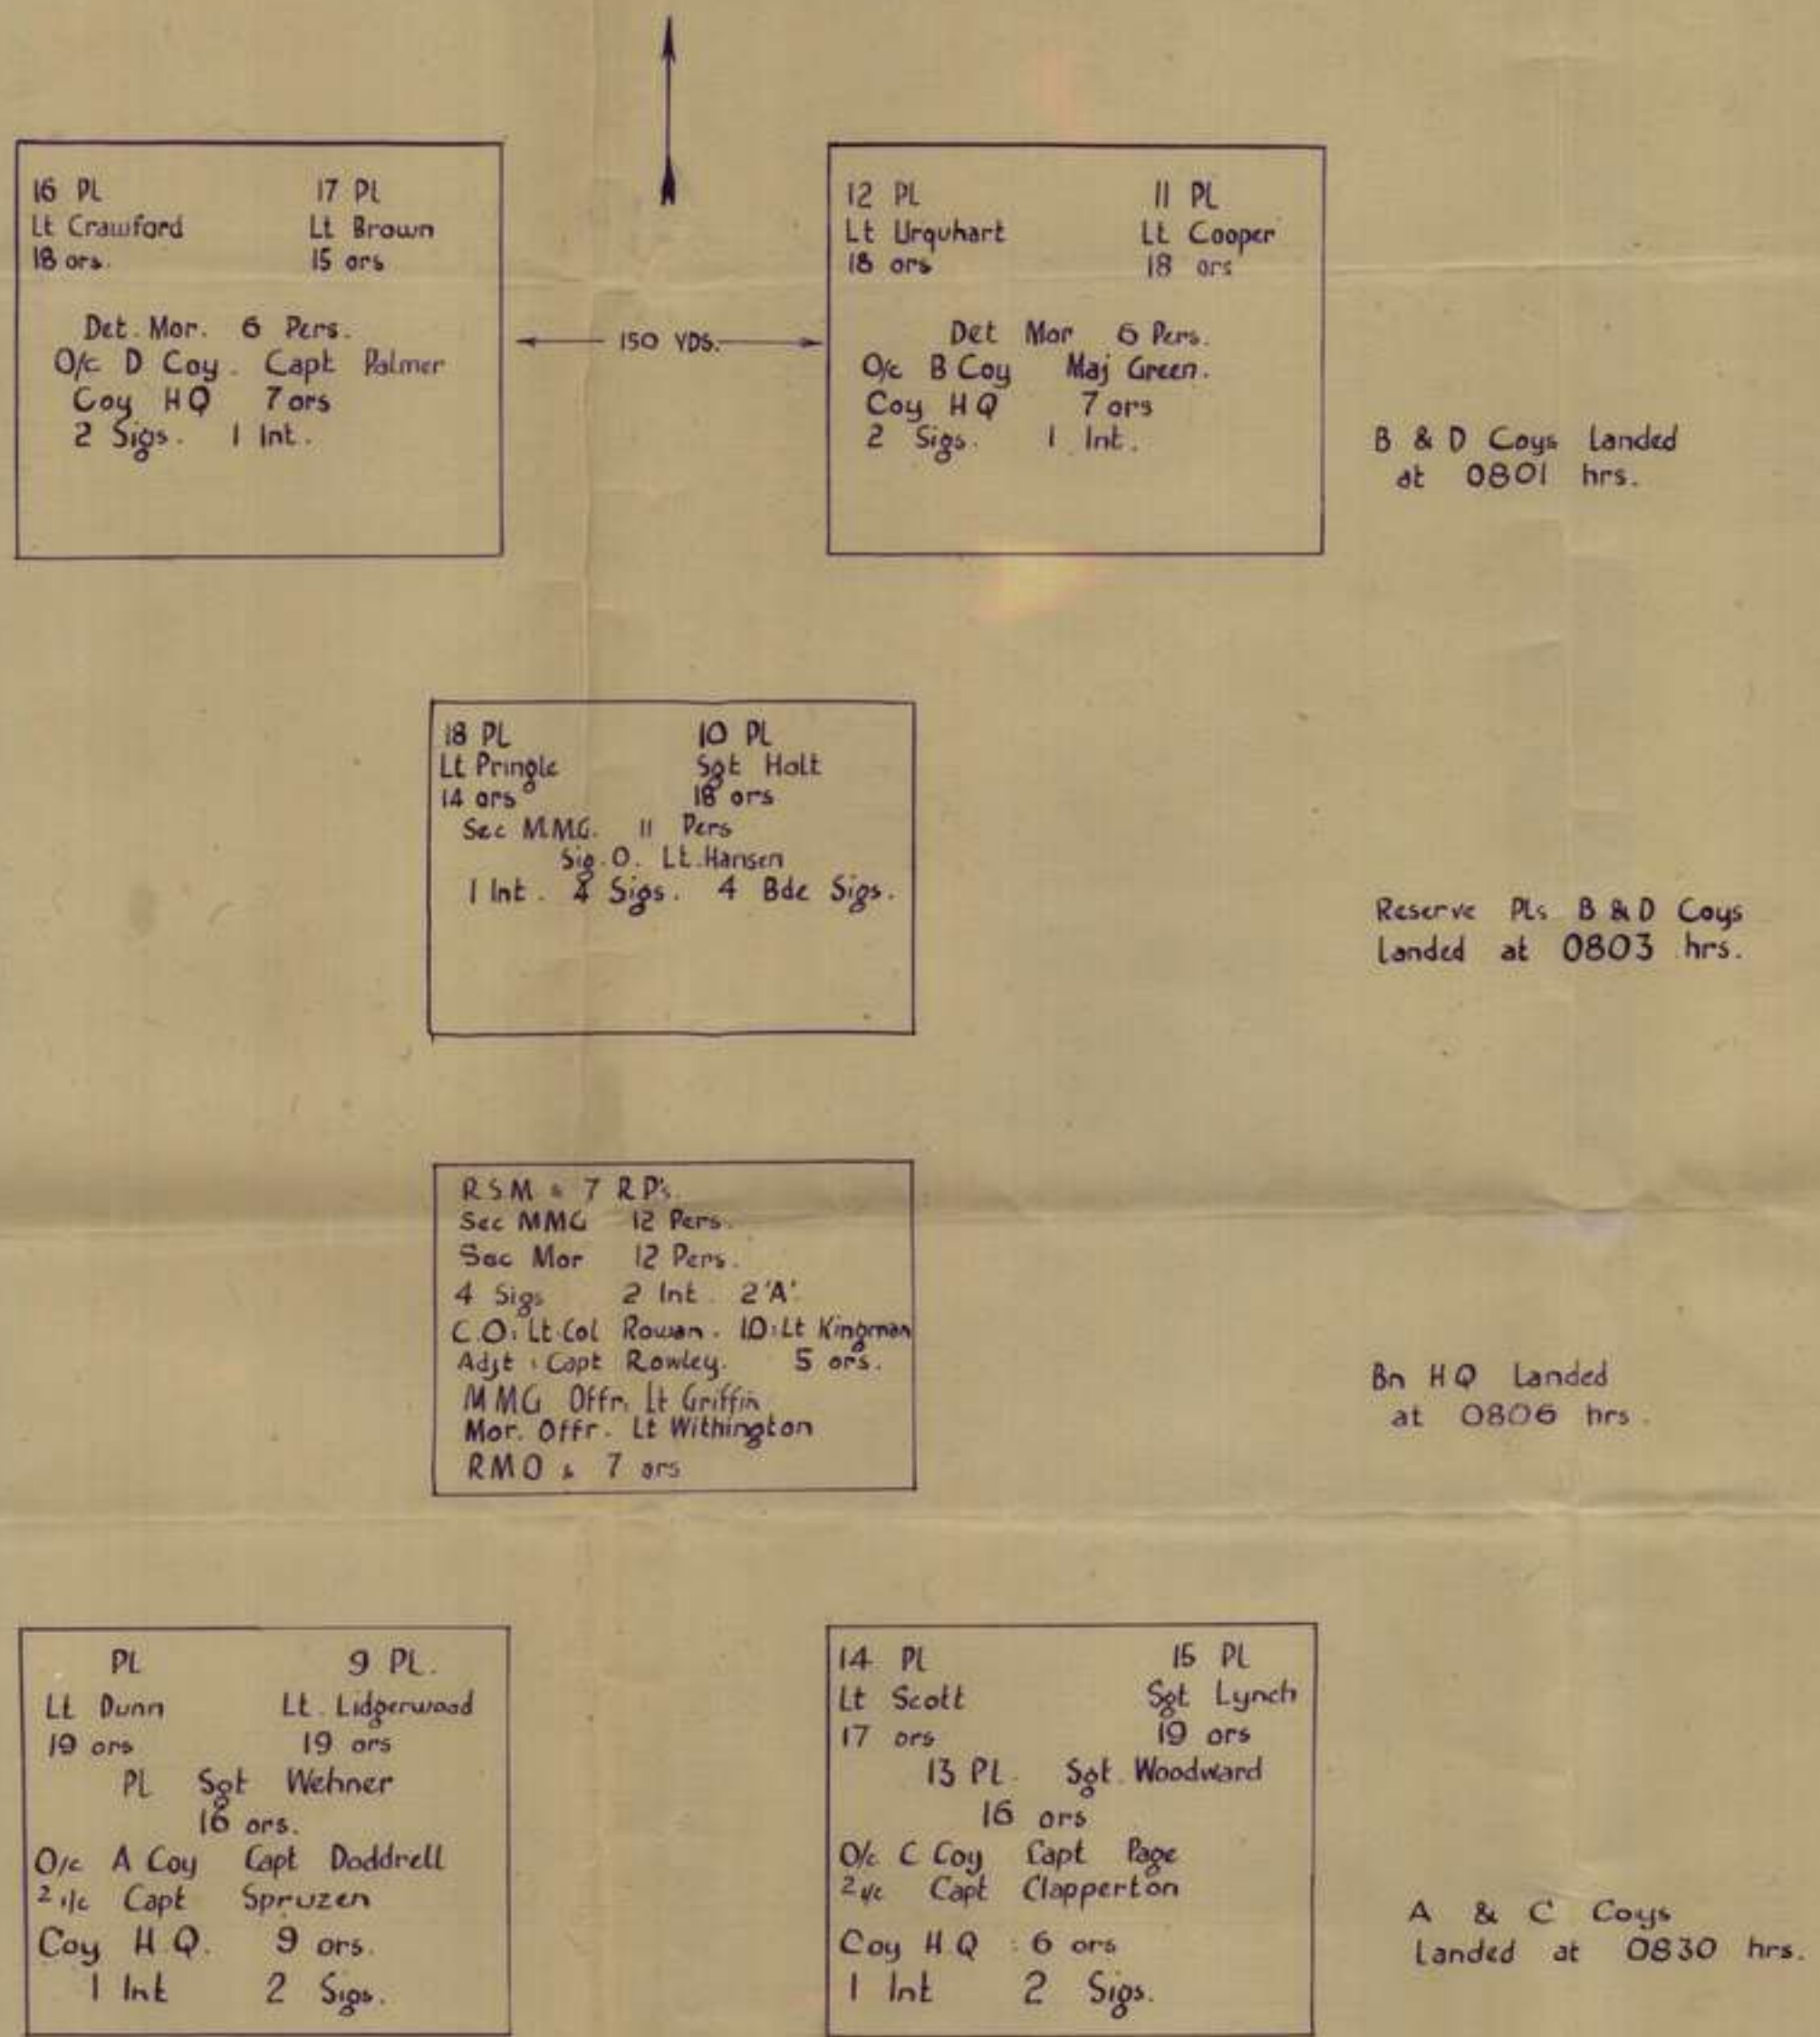 16 PL 17 PL
Lt Crawford Lt Brown
18 ors. 15 ors
Det. Mor. 6 Pers.
O/c D Coy. Capt Palmer
Coy HQ 7 ors
2 Sigs. 1 Int.
150 YDS.
12 PL 11 PL
Lt Urquhart Lt Cooper
18 ors 18 ors
Det Mor 6 Pers.
O/c B Coy Maj Green.
Coy HQ 7 ors
2 Sigs. 1 Int.
B & D Coys Landed
at 0801 hrs.
18 PL 10 PL
Lt Pringle Sgt Holt
14 ors 18 ors
Sec M.M.G. 11 Pers
Sig. O. Lt. Hansen
1 Int. 4 Sigs. 4 Bde Sigs.
Reserve Pls B & D Coys
Landed at 0803 hrs.
R.S.M & 7 R.P's.
Sec MMG 12 Pers.
Sec Mor 12 Pers.
4 Sigs 2 Int. 2 'A'.
C.O: Lt-Col Rowan. I.O: Lt Kingman
Adjt: Capt Rowley. 5 ors.
MMG Offr. Lt Griffin
Mor. Offr. Lt Withington
RMO & 7 ors
Bn HQ Landed
at 0806 hrs.
PL 9 PL.
Lt Dunn Lt. Lidgerwood
19 ors 19 ors
PL Sgt Wehner
16 ors.
O/c A Coy Capt Doddrell
2 i/c Capt Spruzen
Coy H.Q. 9 ors.
1 Int 2 Sigs.
14 PL 15 PL
Lt Scott Sgt Lynch
17 ors 19 ors
13 PL. Sgt. Woodward
16 ors
O/c C Coy Capt Page
2 i/c Capt Clapperton
Coy H.Q : 6 ors
1 Int 2 Sigs.
A & C Coys
Landed at 0830 hrs.